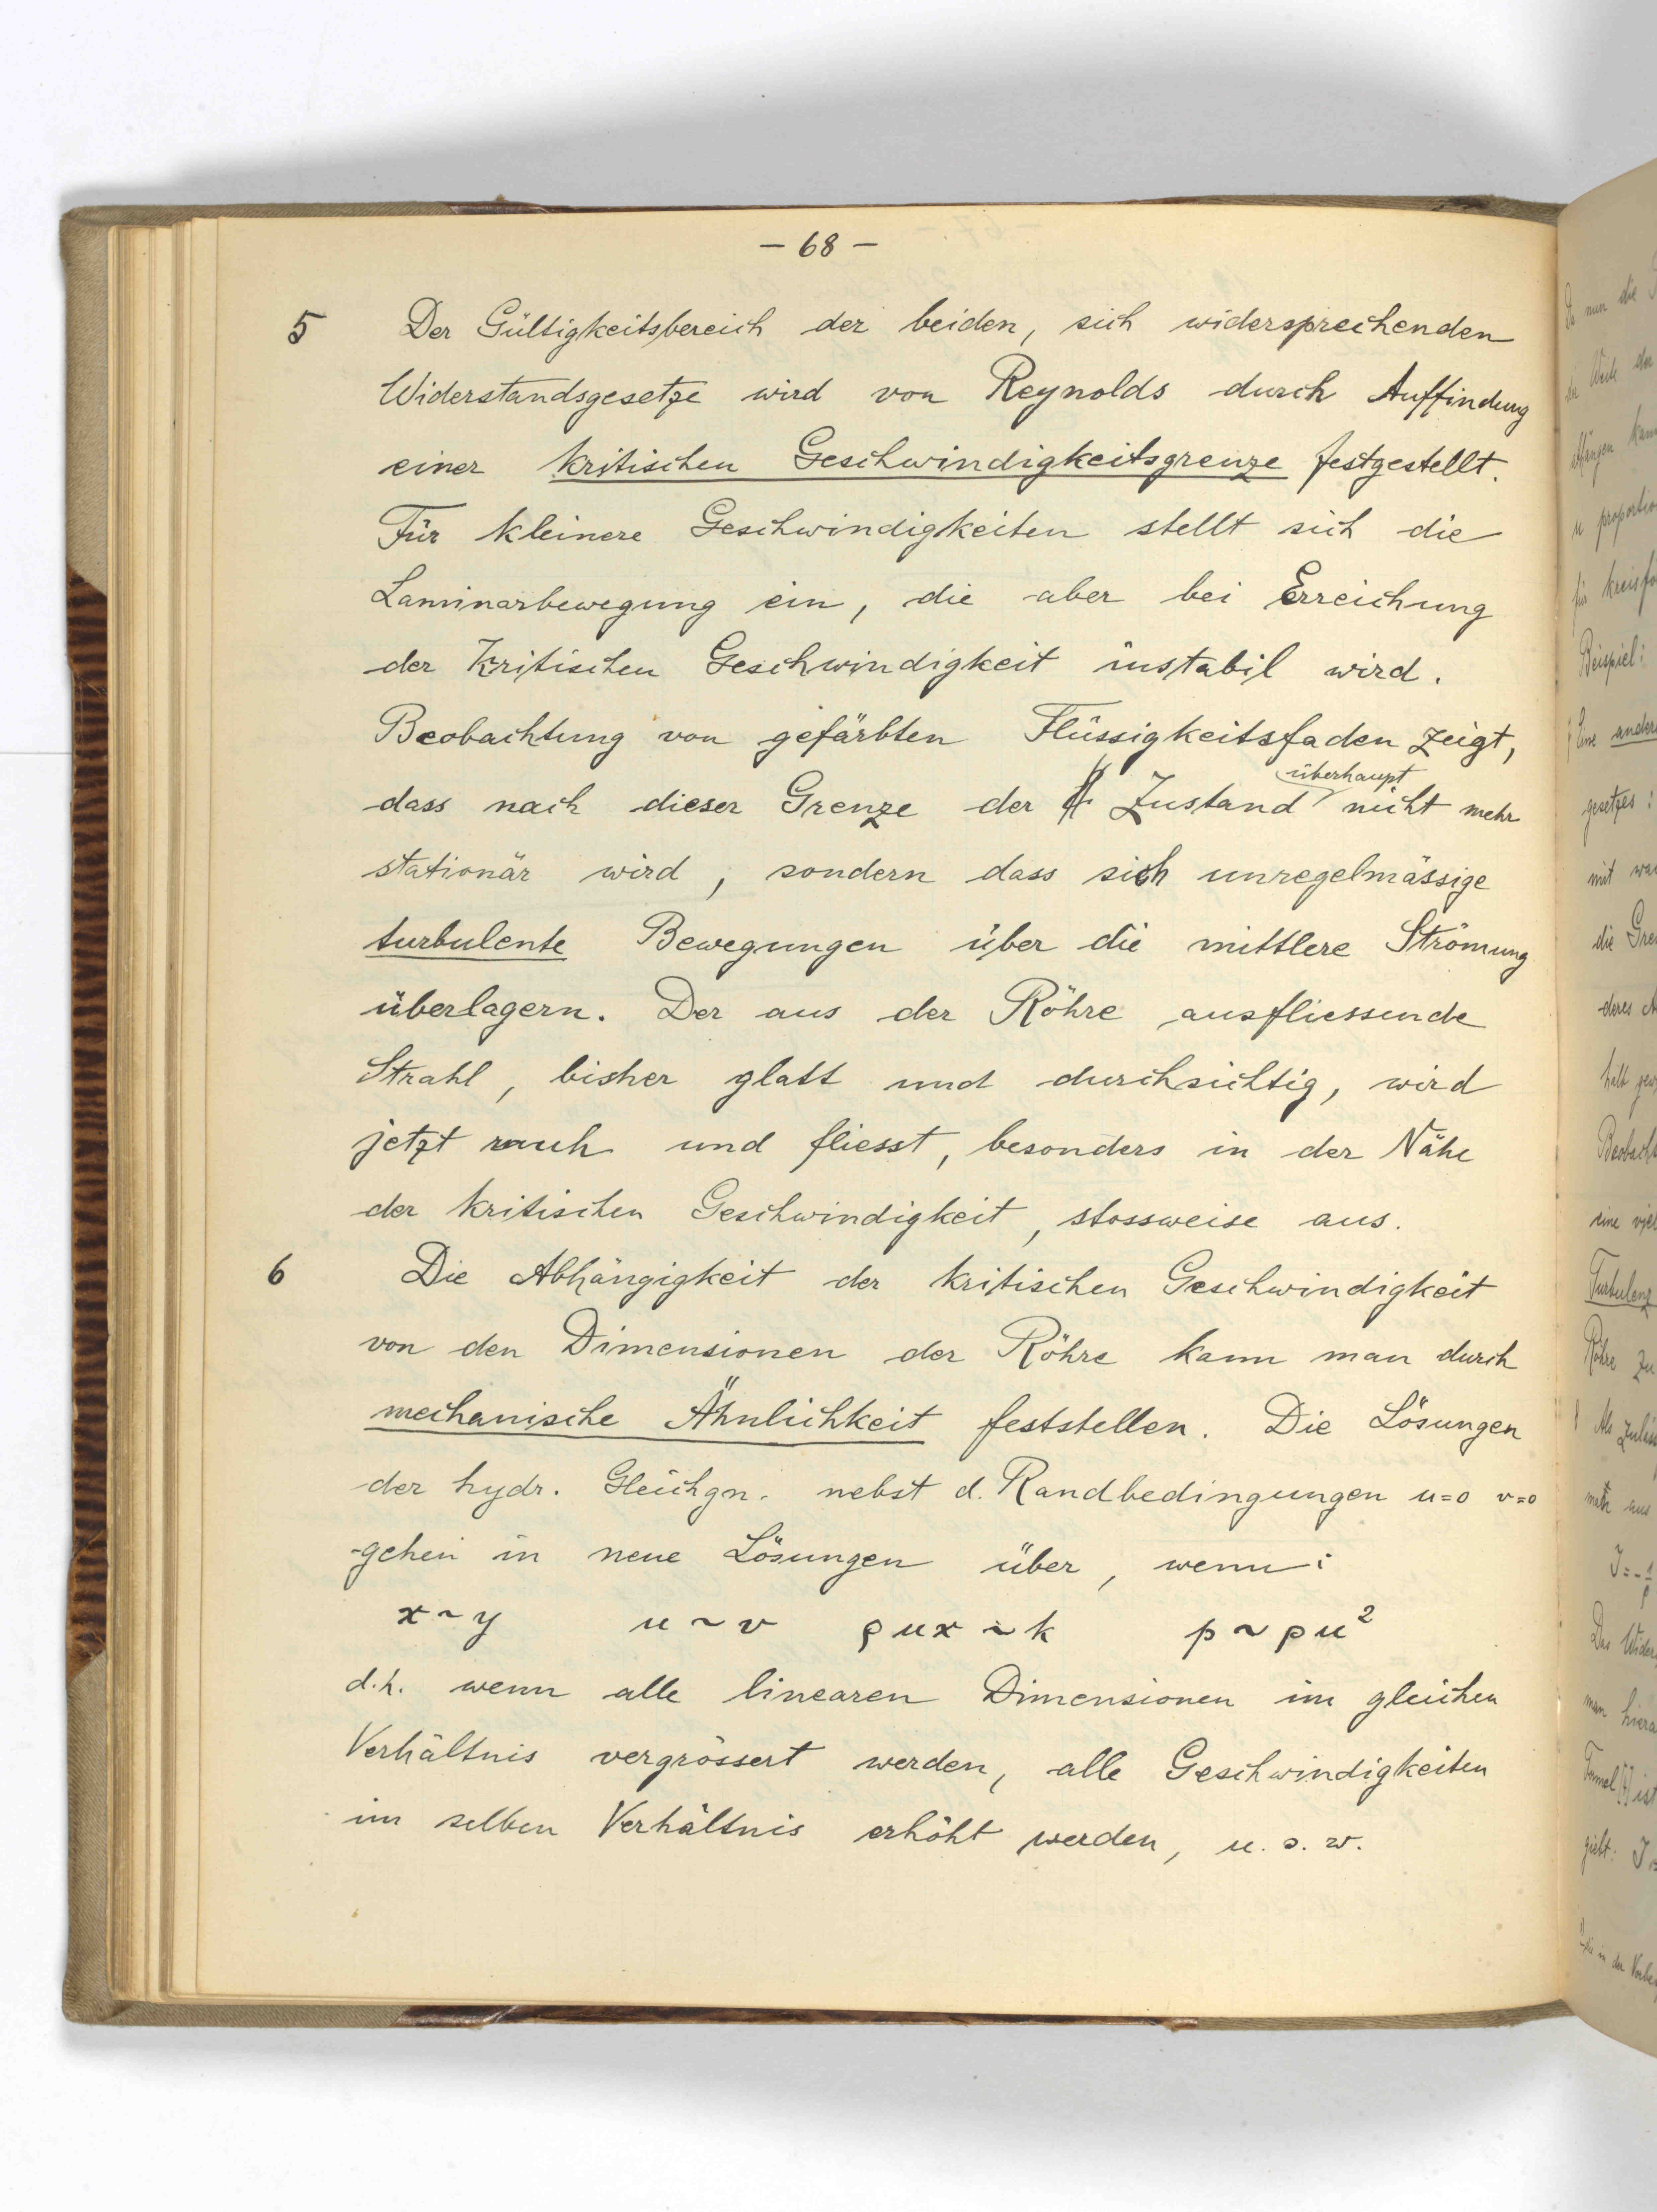 - 68 -
5 Der Gültigkeitsbereich der beiden, sich widersprechenden
Widerstandsgesetze wird von Reynolds durch Auffindung
einer kritischen Geschwindigkeitsgrenze festgestellt.
Für kleinere Geschwindigkeiten stellt sich die
Laminarbewegung ein, die aber bei Erreichung
der kritischen Geschwindigkeit instabil wird.
Beobachtung von gefärbten Flüssigkeitsfaden zeigt,
überhaupt
dass nach dieser Grenze der Zustand nicht mehr
stationär wird, sondern dass sich unregelmässige
turbulente Bewegungen über die mittlere Strömung
überlagern. Der aus der Röhre ausfliessende
Strahl, bisher glatt und durchsichtig, wird
jetzt rauh und fliesst, besonders in der Nähe
der kritischen Geschwindigkeit, stossweise aus.
6 Die Abhängigkeit der kritischen Geschwindigkeit
von den Dimensionen der Röhre kann man durch
mechanische Ähnlichkeit feststellen. Die Lösungen
der hydr. Gleichgn. nebst d. Randbedingungen u=0 v=0
gehen in neue Lösungen über, wenn:
x~y u~v ρux~k p~ρu²
d.h. wenn alle linearen Dimensionen im gleichen
Verhältnis vergrössert werden, alle Geschwindigkeiten
im selben Verhältnis erhöht werden, u.s.w.
nun die
kann
u proportio
für kreisfo
Beispiel:
Eine andere
gesetzes:
mit
die Gre
deres
Beobach
eine viel
Turbulenz
Röhre zu
Als
aus
Das Wider
man hiera
ist
giebt:
in der